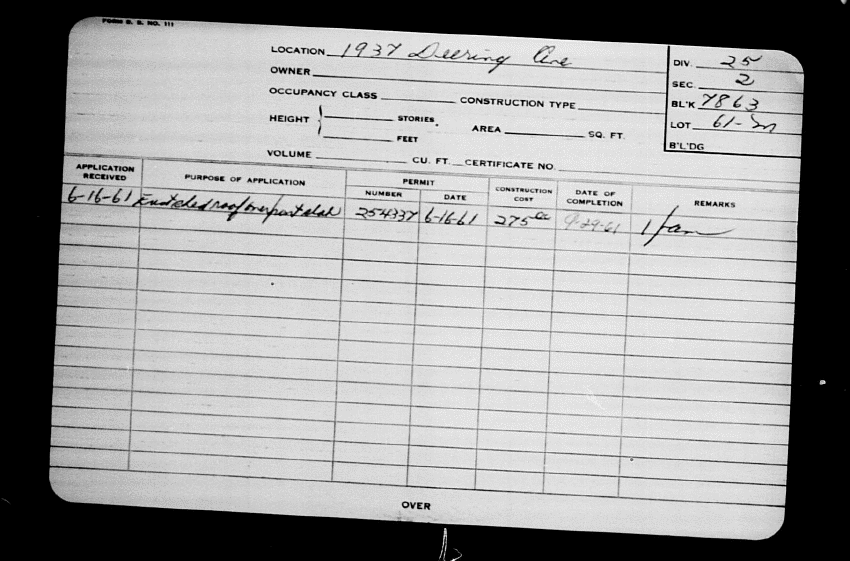 FORM B. B. NO. 111
LOCATION 1937 Deering Ave
OWNER
OCCUPANCY CLASS CONSTRUCTION TYPE
HEIGHT { STORIES
FEET
AREA SQ. FT.
VOLUME CU. FT. CERTIFICATE NO.
DIV. 25
SEC. 2
BL'K 7863
LOT 61-
B'L'DG
APPLICATION RECEIVED PURPOSE OF APPLICATION PERMIT NUMBER DATE CONSTRUCTION COST DATE OF COMPLETION REMARKS
6-16-61 roof over slab 254337 6-16-61 275 9-29-61 1 fam
OVER